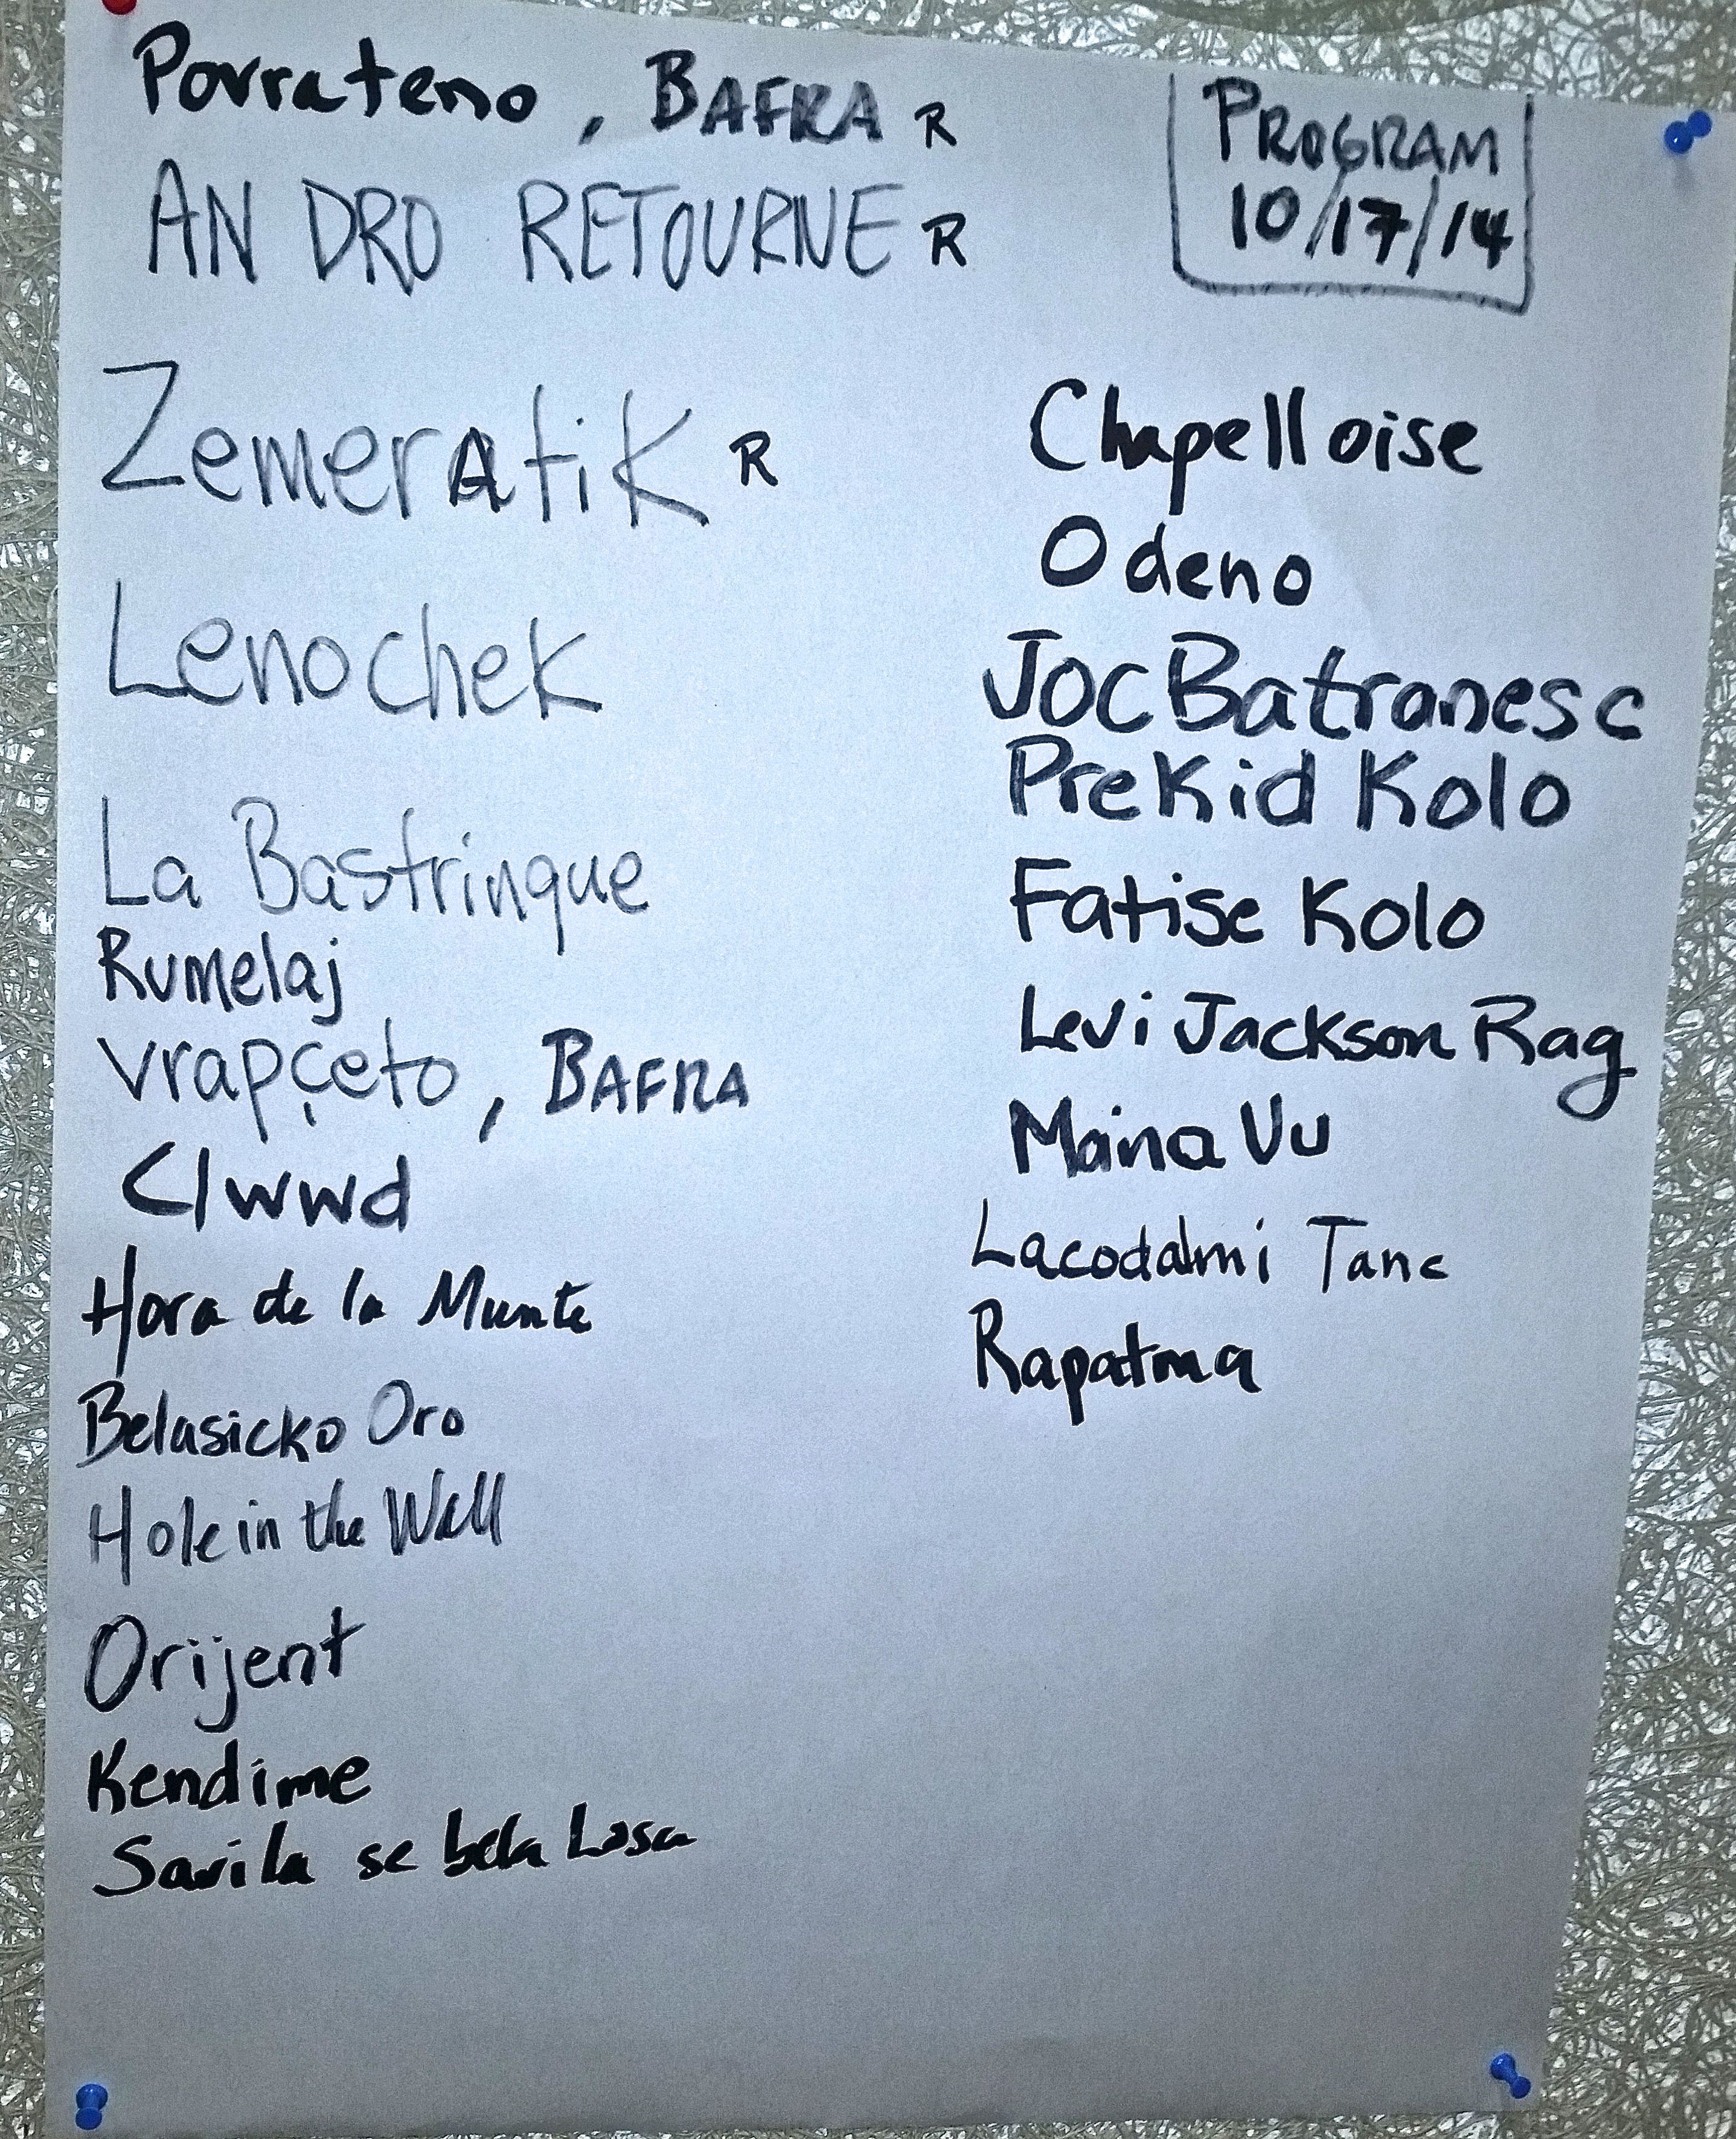 Povrateno, BAFRA R
AN DRO RETOURNE R
PROGRAM
10/17/14
Zemeratik R
Lenochek
La Bastrinque
Rumelaj
vrapçeto, BAFRA
Clwwd
Hora de la Munte
Belasicko Oro
Hole in the Wall
Orijent
Kendime
Savila se bela Losa
Chapelloise
Odeno
Joc Batranesc
PreKid Kolo
Fatise Kolo
Levi Jackson Rag
Maina Vu
Lacodalmi Tanc
Rapatma